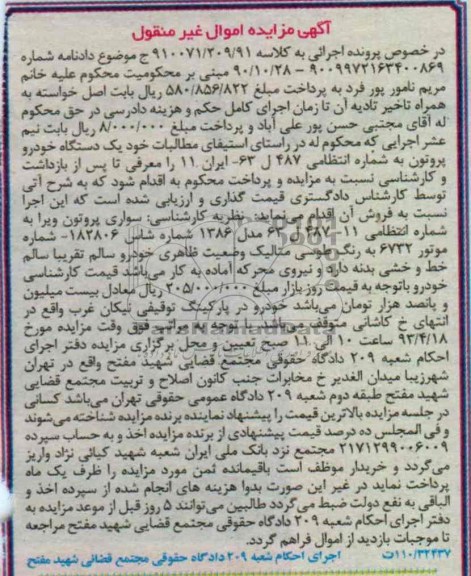 آگهی مزایده اموال غیر منقول
در خصوص پرونده اجرائی به کلاسه ۹۱۰۰۷۱/۲۰۹/۹۱ ج موضوع دادنامه شماره
۹۰۰۹۹۷۲۱۶۳۴۰۰۸۶۹ - ۹۰/۱۰/۲۸ مبنی بر محکومیت محکوم علیه خانم
مریم نامور پور فرد به پرداخت مبلغ ۵۸۰/۸۵۶/۸۲۲ ریال بابت اصل خواسته به
همراه تاخیر تادیه آن تا زمان اجرای کامل حکم و هزینه دادرسی در حق محکوم
له آقای مجتبی حسن پور علی آباد و پرداخت مبلغ ۸/۰۰۰/۰۰۰ ریال بابت نیم
عشر اجرایی که محکوم له در راستای استیفای مطالبات خود یک دستگاه خودرو
پروتون به شماره انتظامی ۴۸۷ ل ۶۳- ایران ۱۱ را معرفی تا پس از بازداشت
و کارشناسی نسبت به مزایده و پرداخت محکوم به اقدام شود که به شرح آتی
توسط کارشناس دادگستری قیمت گذاری و ارزیابی شده است که این اجرا
نسبت به فروش آن اقدام می‌نماید: نظریه کارشناسی: سواری پروتون ویرا به
شماره انتظامی ۱۱- ۴۸۷ ل ۶۳ مدل ۱۳۸۶ شماره شاسی ۱۸۲۸۰۶- شماره
موتور ۶۷۳۲ به رنگ طوسی متالیک وضعیت ظاهری خودرو سالم تقریبا سالم
خط و خشی بدنه دارد و نیروی محرکه آماده به کار می‌باشد قیمت کارشناسی
خودرو باتوجه به قیمت روز بازار مبلغ ۲۰۵/۰۰۰/۰۰۰ ریال معادل بیست میلیون
و پانصد هزار تومان می‌باشد خودرو در پارکینگ توقیفی نیکان غرب واقع در
انتهای خ کاشانی متوقف می‌باشد. با توجه به مراتب فوق وقت مزایده مورخ
۹۳/۴/۱۸ ساعت ۱۰ الی ۱۱ صبح تعیین و محل برگزاری مزایده دفتر اجرای
احکام شعبه ۲۰۹ دادگاه حقوقی مجتمع قضایی شهید مفتح واقع در تهران
شهرزیبا میدان الغدیر خ مخابرات جنب کانون اصلاح و تربیت مجتمع قضایی
شهید مفتح طبقه دوم شعبه ۲۰۹ دادگاه عمومی حقوقی تهران می‌باشد کسانی
در جلسه مزایده بالاترین قیمت را پیشنهاد نماینده برنده مزایده شناخته می‌شوند
و فی المجلس ده درصد قیمت پیشنهادی از برنده مزایده اخذ و به حساب سپرده
۲۱۷۱۲۹۹۰۰۶۰۰۹ مجتمع نزد بانک ملی ایران شعبه شهید کیائی نژاد واریز
می‌گردد و خریدار موظف است باقیمانده ثمن مورد مزایده را ظرف یک ماه
پرداخت نماید در غیر این صورت بدوا هزینه های انجام شده از سپرده اخذ و
الباقی به نفع دولت ضبط می‌گردد طالبین می‌توانند ۵ روز قبل از موعد مزایده به
دفتر اجرای احکام شعبه ۲۰۹ دادگاه حقوقی مجتمع قضایی شهید مفتح مراجعه
تا موجبات بازدید از اموال فراهم گردد.
۱۱۰/۳۲۴۳۷ت اجرای احکام شعبه ۲۰۹ دادگاه حقوقی مجتمع قضائی شهید مفتح